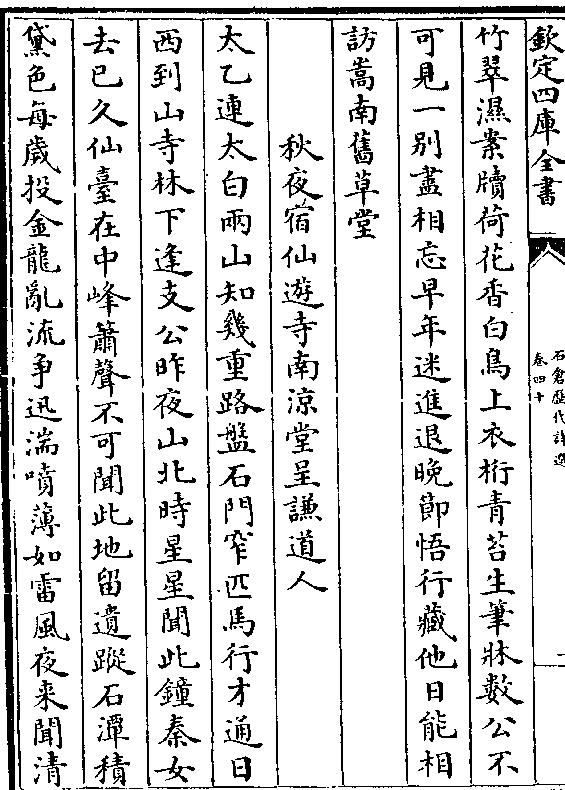 欽定四庫全書
石倉歷代詩選
卷四十
竹翠濕案牘荷花香白鳥上衣桁青苔生筆牀數公不
可見一别盡相忘早年迷進退晚節悟行藏他日能相
訪嵩南舊草堂
秋夜宿仙遊寺南涼堂呈謙道人
太乙連太白兩山知幾重路盤石門窄匹馬行才通日
西到山寺林下逢支公昨夜山北時星星聞此鐘秦女
去已久仙臺在中峰簫聲不可聞此地留遺蹤石潭積
黛色每歲投金龍亂流爭迅湍噴薄如雷風夜来聞清